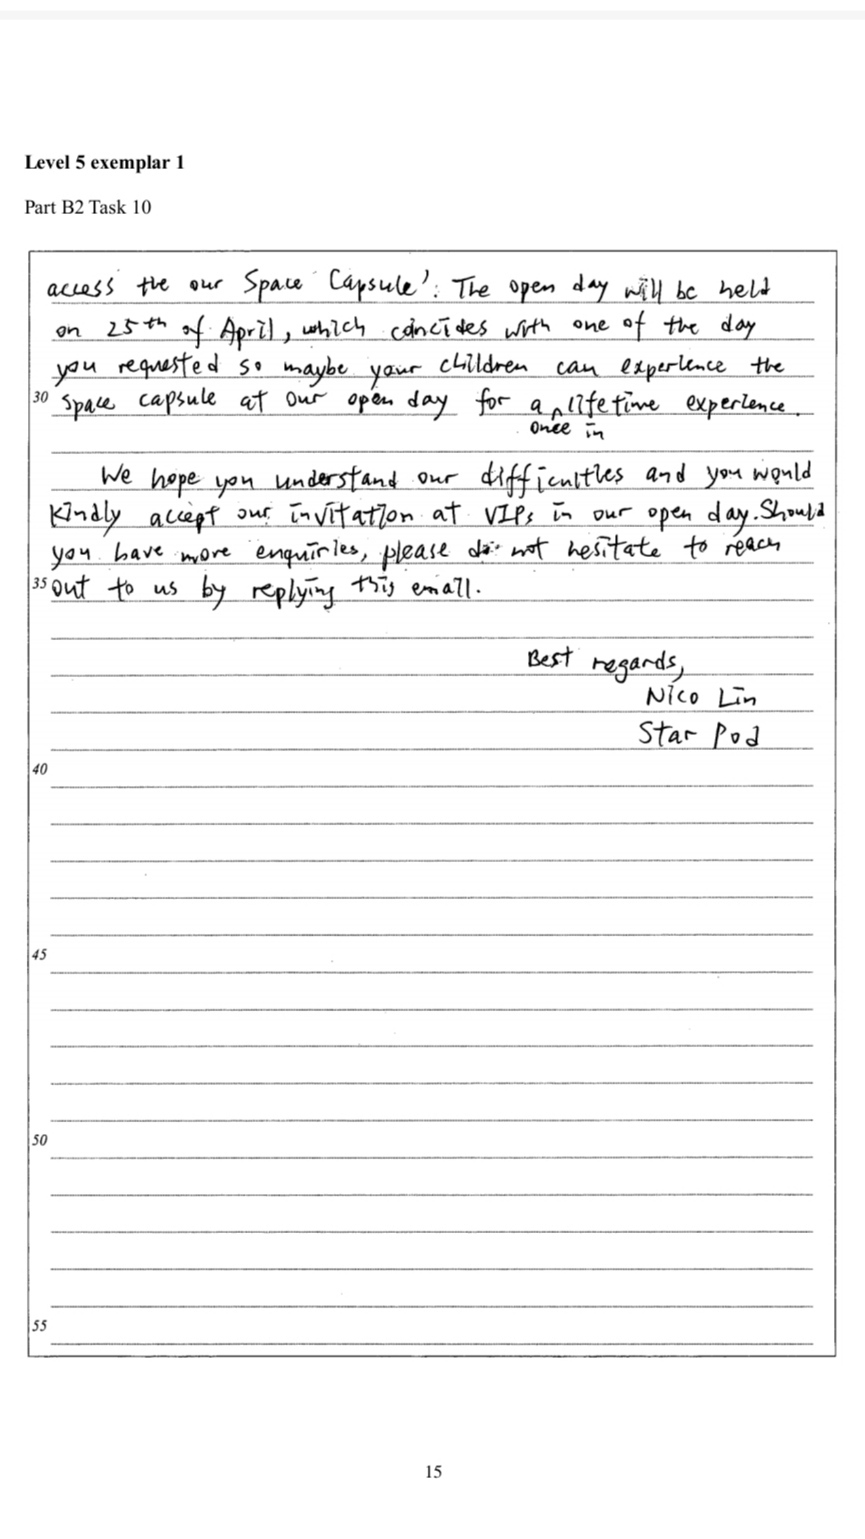 Level 5 exemplar 1
Part B2 Task 10
access the our Space Capsule'. The open day will be held
on 25th of April, which concides with one of the day
you requested so maybe your children can experience the
30 space capsule at our open day for a ^ lifetime experience.
once in
We hope you understand our difficulties and you would
kindly accept our invitation at VIPs in our open day. Should
you have more enquiries, please do not hesitate to reach
35 out to us by replying this email.
Best regards,
Nico Lin
Star Pod
40
45
50
55
15